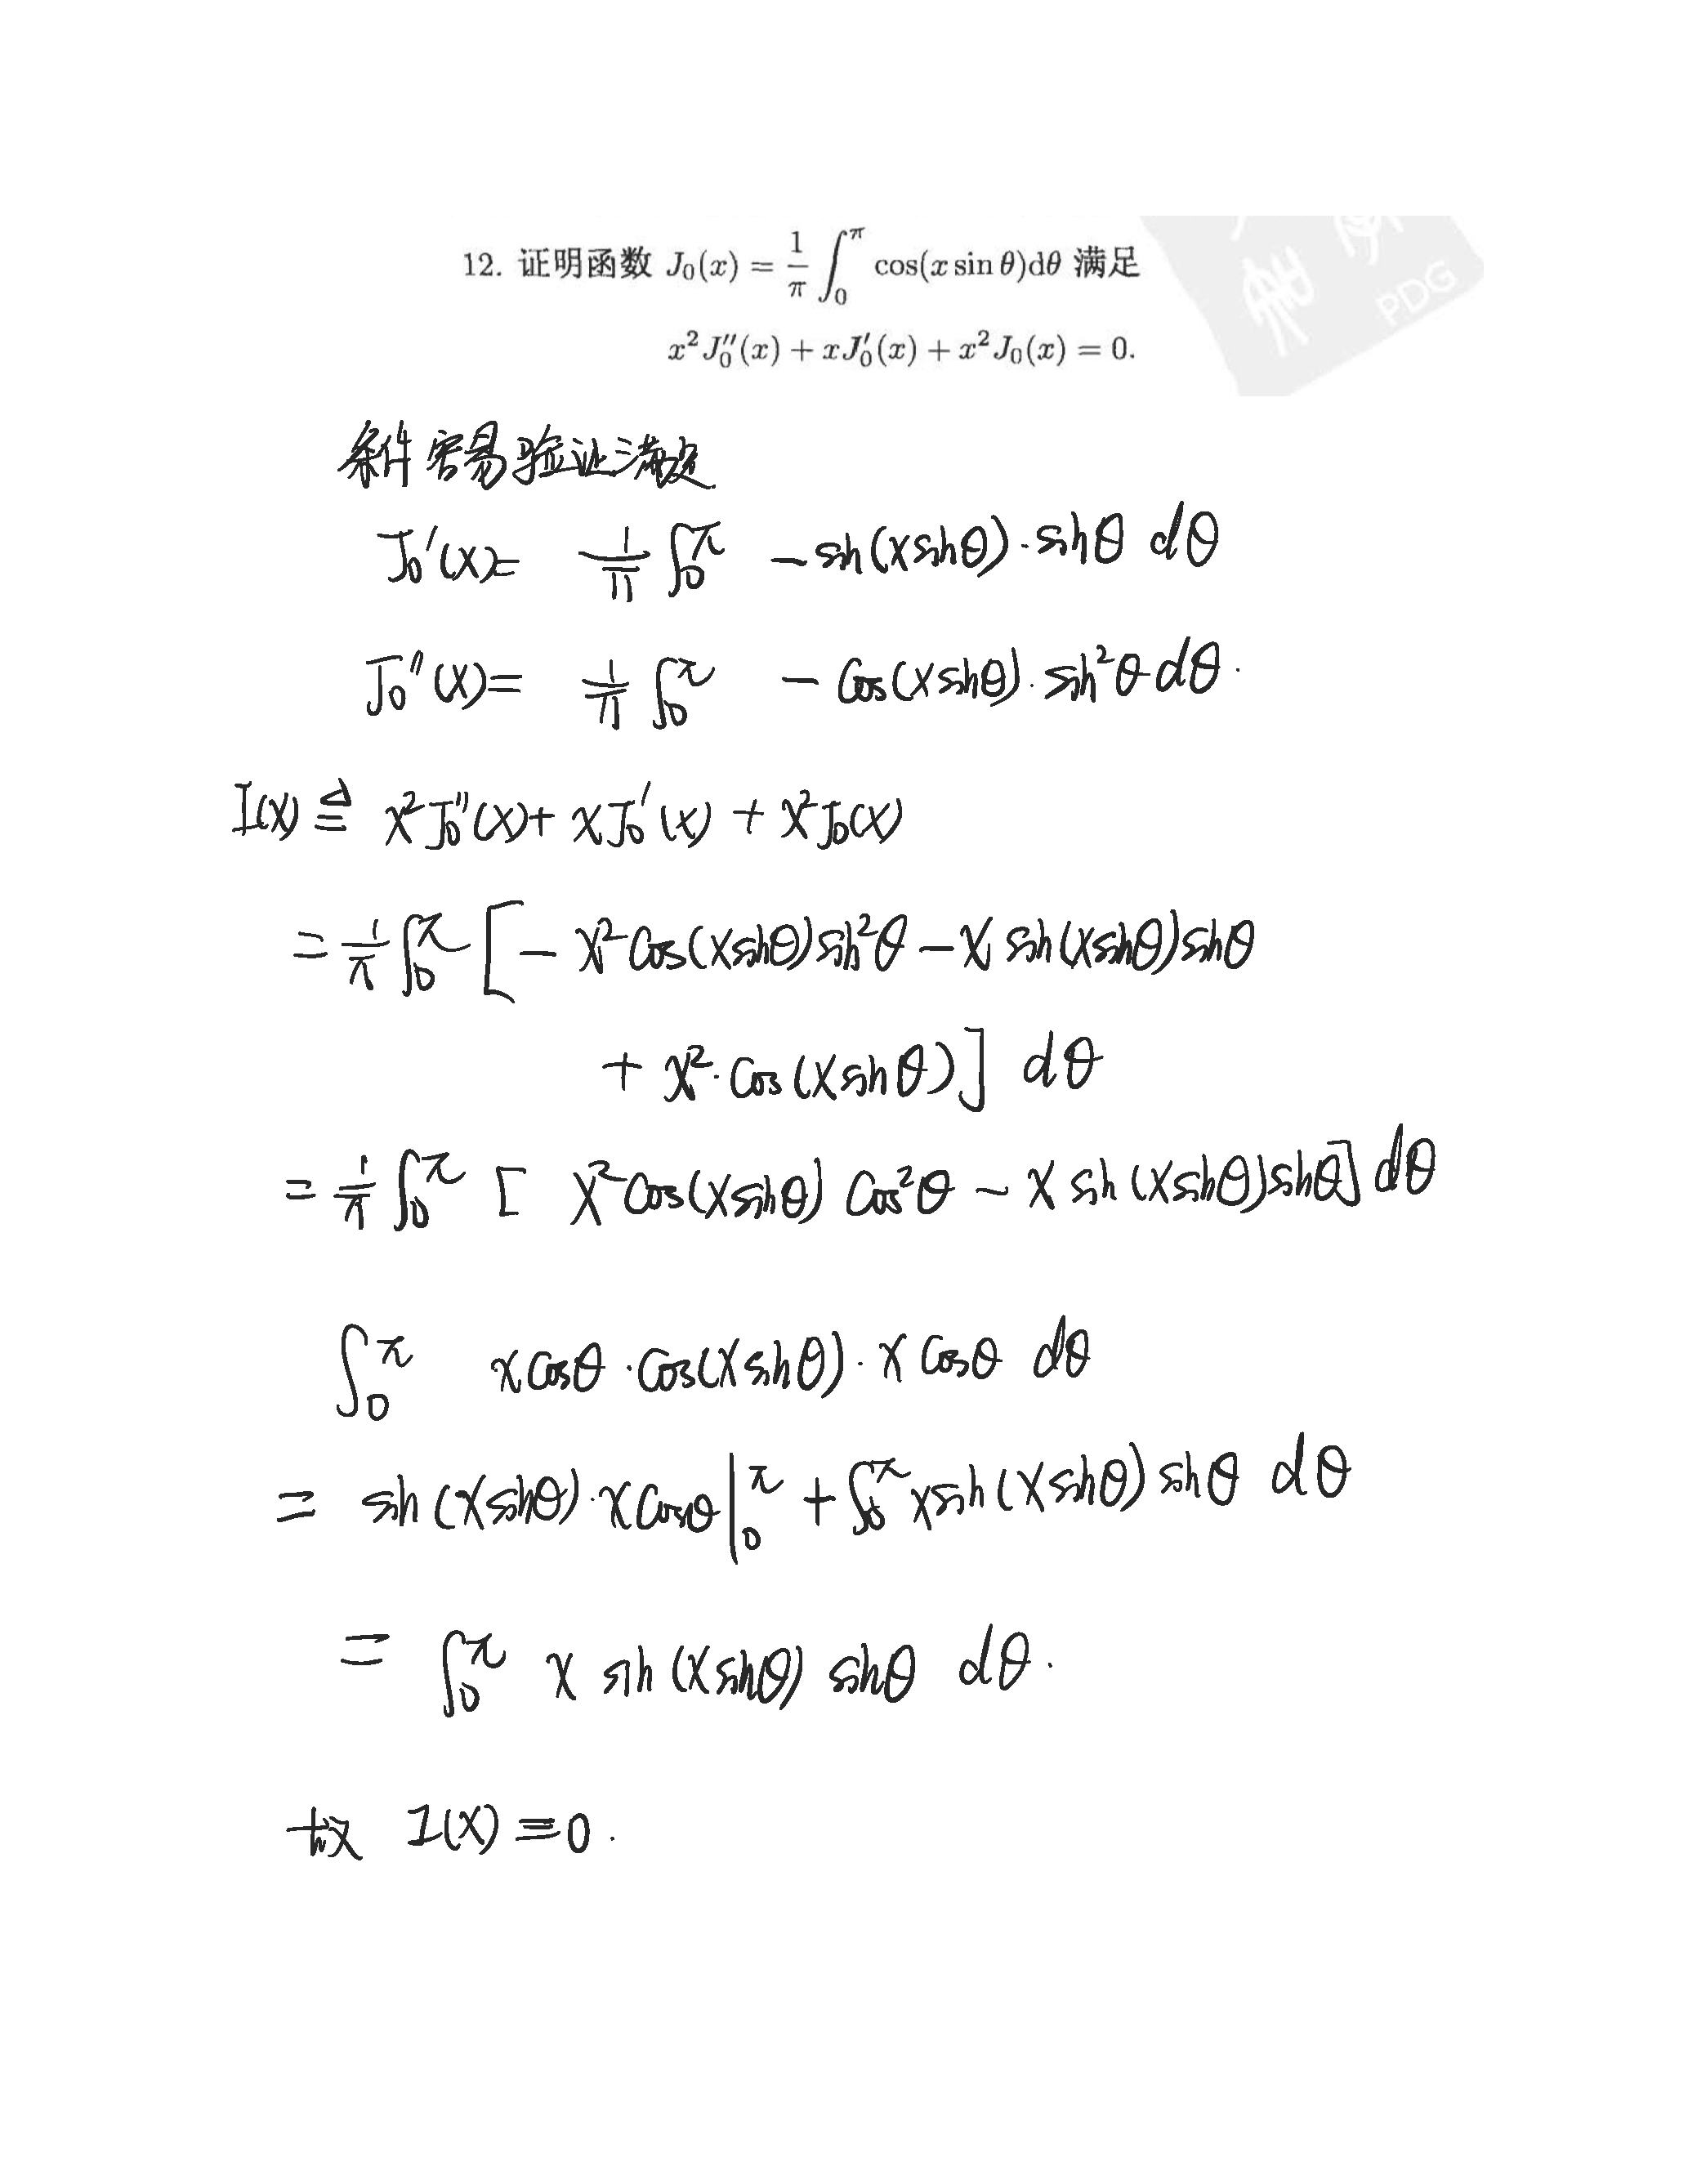 12. 证明函数 J₀(x) = 1/π ∫₀^π cos(x sin θ)dθ 满足
x²J₀″(x) + xJ₀′(x) + x²J₀(x) = 0.
PDG
条件容易验证满足
J₀′(x) = 1/π ∫₀^π −sin(x sinθ)·sinθ dθ
J₀″(x) = 1/π ∫₀^π −cos(x sinθ)·sin²θ dθ.
I(x) ≜ x²J₀″(x) + xJ₀′(x) + x²J₀(x)
= 1/π ∫₀^π [ − x²cos(x sinθ)sin²θ − x sin(x sinθ)sinθ
+ x²·cos(x sinθ)] dθ
= 1/π ∫₀^π [ x²cos(x sinθ) cos²θ − x sin(x sinθ)sinθ] dθ
∫₀^π x cosθ·cos(x sinθ)·x cosθ dθ
= sin(x sinθ)·x cosθ |₀^π + ∫₀^π x sin(x sinθ) sinθ dθ
= ∫₀^π x sin(x sinθ) sinθ dθ.
故 I(x) ≡ 0.